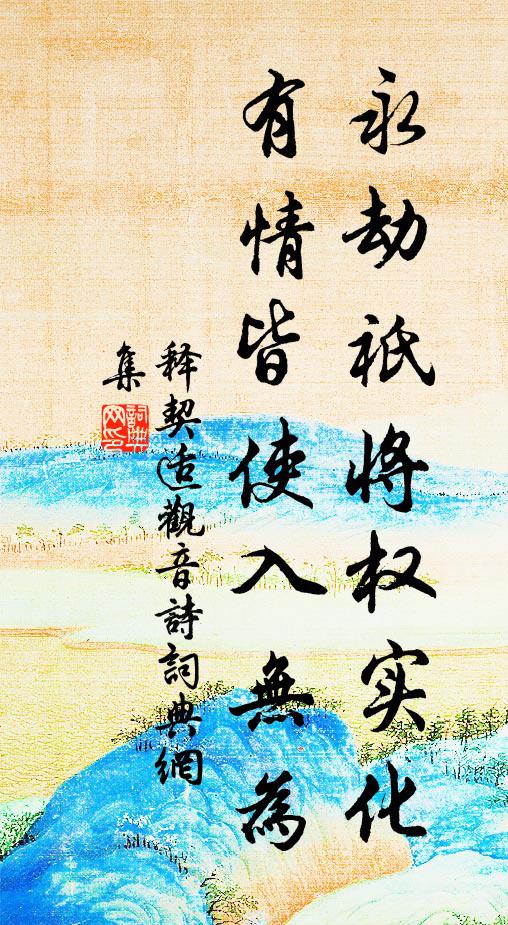 永劫祇將权实化
有情皆使入無為
释契适觀音詩詞典網
集
詞典
网印